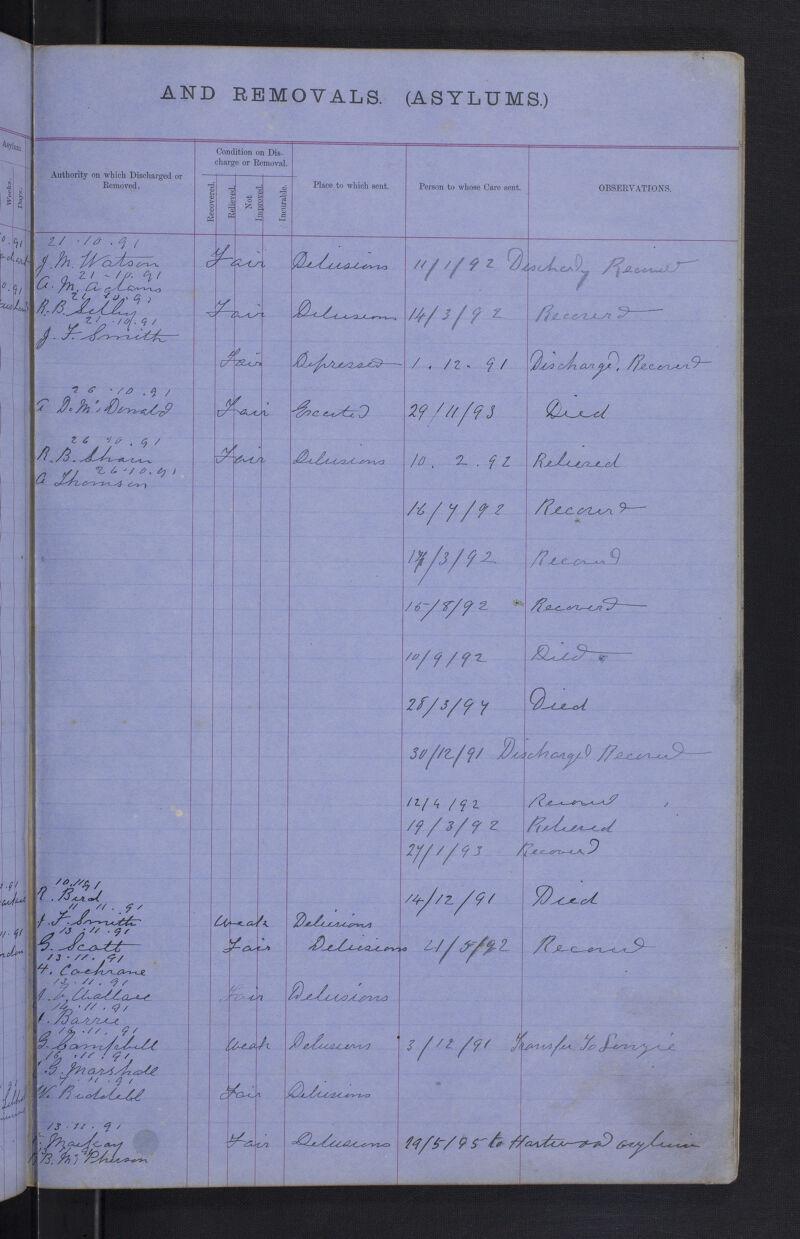 AND REMOVALS. (ASYLUMS.)
Asylum
Weeks.
Days.
Authority on which Discharged or Removed.
Condition on Discharge or Removal.
Recovered.
Relieved.
Not Improved.
Incurable.
Place to which sent.
Person to whose Care sent.
OBSERVATIONS.
21.10.91
J. M. Watson Fair Delusions 11/1/92
21-10.91
A. M. Adams
R. B. Selby Fair Delusions 14/3/92 Recovered
21.10.91
J. F. Smith
Fair Depressed 1.12.91 Discharged. Recovered
26.10.91
A D. McDonald Fair Excited 29/11/93 Died
26.10.91
R. B. Shaw Fair Delusions 10.2.92 Relieved
26.10.91
A Thomson
16/7/92 Recovered
/3/92 Recovered
15/8/92 Recovered
10/9/92 Died
28/3/94 Died
30/12/91 Discharged Recovered
12/4/92 Recovered
19/3/92 Relieved
27/1/93 Recovered
10.11.91
R. Bird 14/12/91 Died
11.11.91
F. Smith Weak Delusions
13.11.91
G. Scott Fair Delusions 21/5/92 Recovered
13.11.91
Cochrane
13.11.91
Wallace Fair Delusions
14.11.91
Barrie
.11.91
G. Campbell Weak Delusions 3/12/91 Transfer To Lenzie
16.11.91
G. Marshall
.11.91
W. Riddell Fair Delusions
13.11.91
Mackay Fair Delusions 29/5/95 to Hartwood asylum
B. McPherson